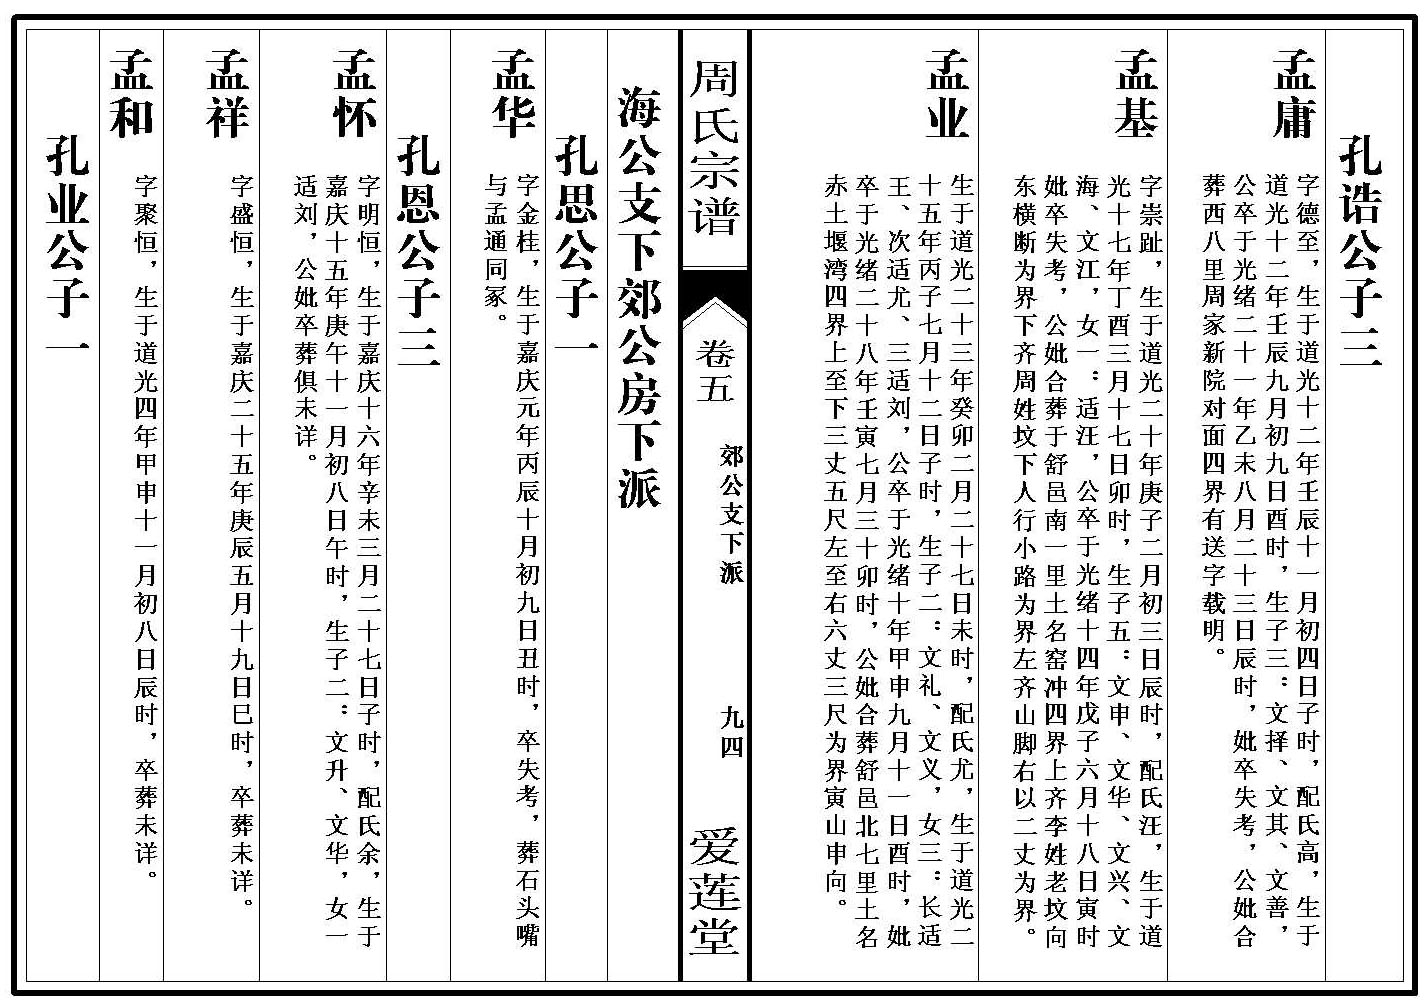 孔诰公子三
孟庸
字德至，生于道光十二年壬辰十一月初四日子时，配氏高，生于
道光十二年壬辰九月初九日酉时，生子三：文择、文其、文善，
公卒于光绪二十一年乙未八月二十三日辰时，妣卒失考，公妣合
葬西八里周家新院对面四界有送字载明。
孟基
字崇趾，生于道光二十年庚子二月初三日辰时，配氏汪，生于道
光十七年丁酉三月十七日卯时，生子五：文申、文华、文兴、文
海、文江，女一：适汪，公卒于光绪十四年戊子六月十八日寅时
妣卒失考，公妣合葬于舒邑南一里土名窑冲四界上齐李姓老坟向
东横断为界下齐周姓坟下人行小路为界左齐山脚右以二丈为界。
孟业
生于道光二十三年癸卯二月二十七日未时，配氏尤，生于道光二
十五年丙子七月十二日子时，生子二：文礼、文义，女三：长适
王、次适尤、三适刘，公卒于光绪十年甲申九月十一日酉时，妣
卒于光绪二十八年壬寅七月三十卯时，公妣合葬舒邑北七里土名
赤土堰湾四界上至下三丈五尺左至右六丈三尺为界寅山申向。
周氏宗谱
卷五
郊公支下派
九四
爱莲堂
海公支下郊公房下派
孔思公子一
孟华
字金桂，生于嘉庆元年丙辰十月初九日丑时，卒失考，葬石头嘴
与孟通同冢。
孔恩公子三
孟怀
字明恒，生于嘉庆十六年辛未三月二十七日子时，配氏余，生于
嘉庆十五年庚午十一月初八日午时，生子二：文升、文华，女一
适刘，公妣卒葬俱未详。
孟祥
字盛恒，生于嘉庆二十五年庚辰五月十九日巳时，卒葬未详。
孟和
字聚恒，生于道光四年甲申十一月初八日辰时，卒葬未详。
孔业公子一